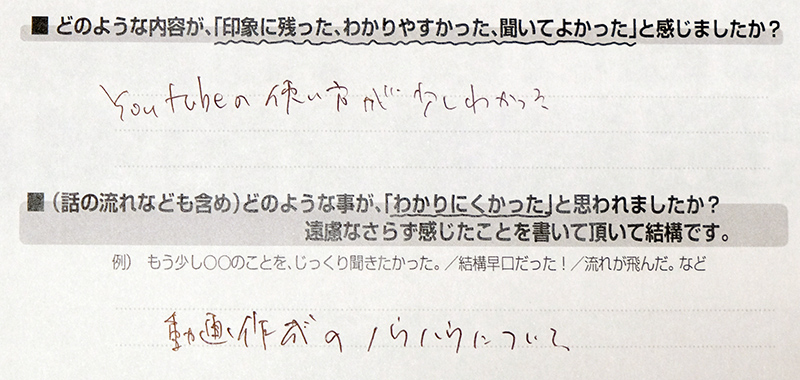 ■ どのような内容が、「印象に残った、わかりやすかった、聞いてよかった」と感じましたか？
Youtubeの使い方が少しわかった
■（話の流れなども含め）どのような事が、「わかりにくかった」と思われましたか？
遠慮なさらず感じたことを書いて頂いて結構です。
例） もう少し〇〇のことを、じっくり聞きたかった。／結構早口だった！／流れが飛んだ。など
動画作成のノウハウについて